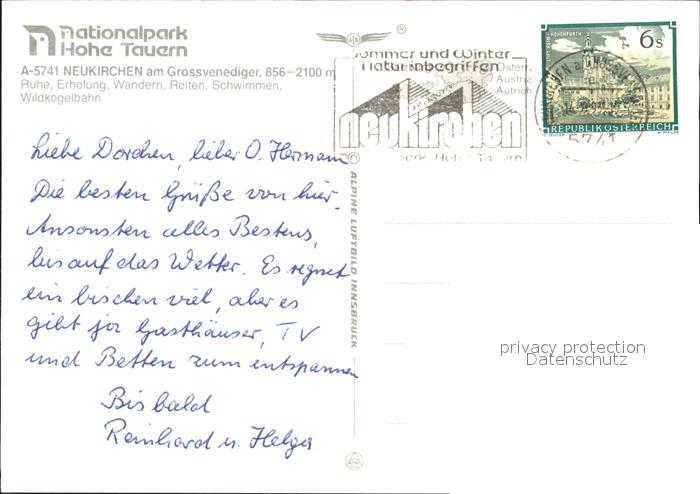 Nationalpark
Hohe Tauern
A-5741 NEUKIRCHEN am Grossvenediger, 856–2100 m
Ruhe, Erholung, Wandern, Reiten, Schwimmen,
Wildkogelbahn
Sommer und Winter
Naturinbegriffen
Österr
Austria
Autrich
neukirchen
park Hohe Tauern
6s
REPUBLIK ÖSTERREICH
5741
Liebe Dorchen, lieber O. Hermann
Die besten Grüße von hier.
Ansonsten alles Bestens,
bis auf das Wetter. Es regnet
ein bischen viel, aber es
gibt ja Gasthäuser, TV
und Betten zum entspannen
Bis bald
Reinhard u. Helga
ALPINE LUFTBILD INNSBRUCK
privacy protection
Datenschutz